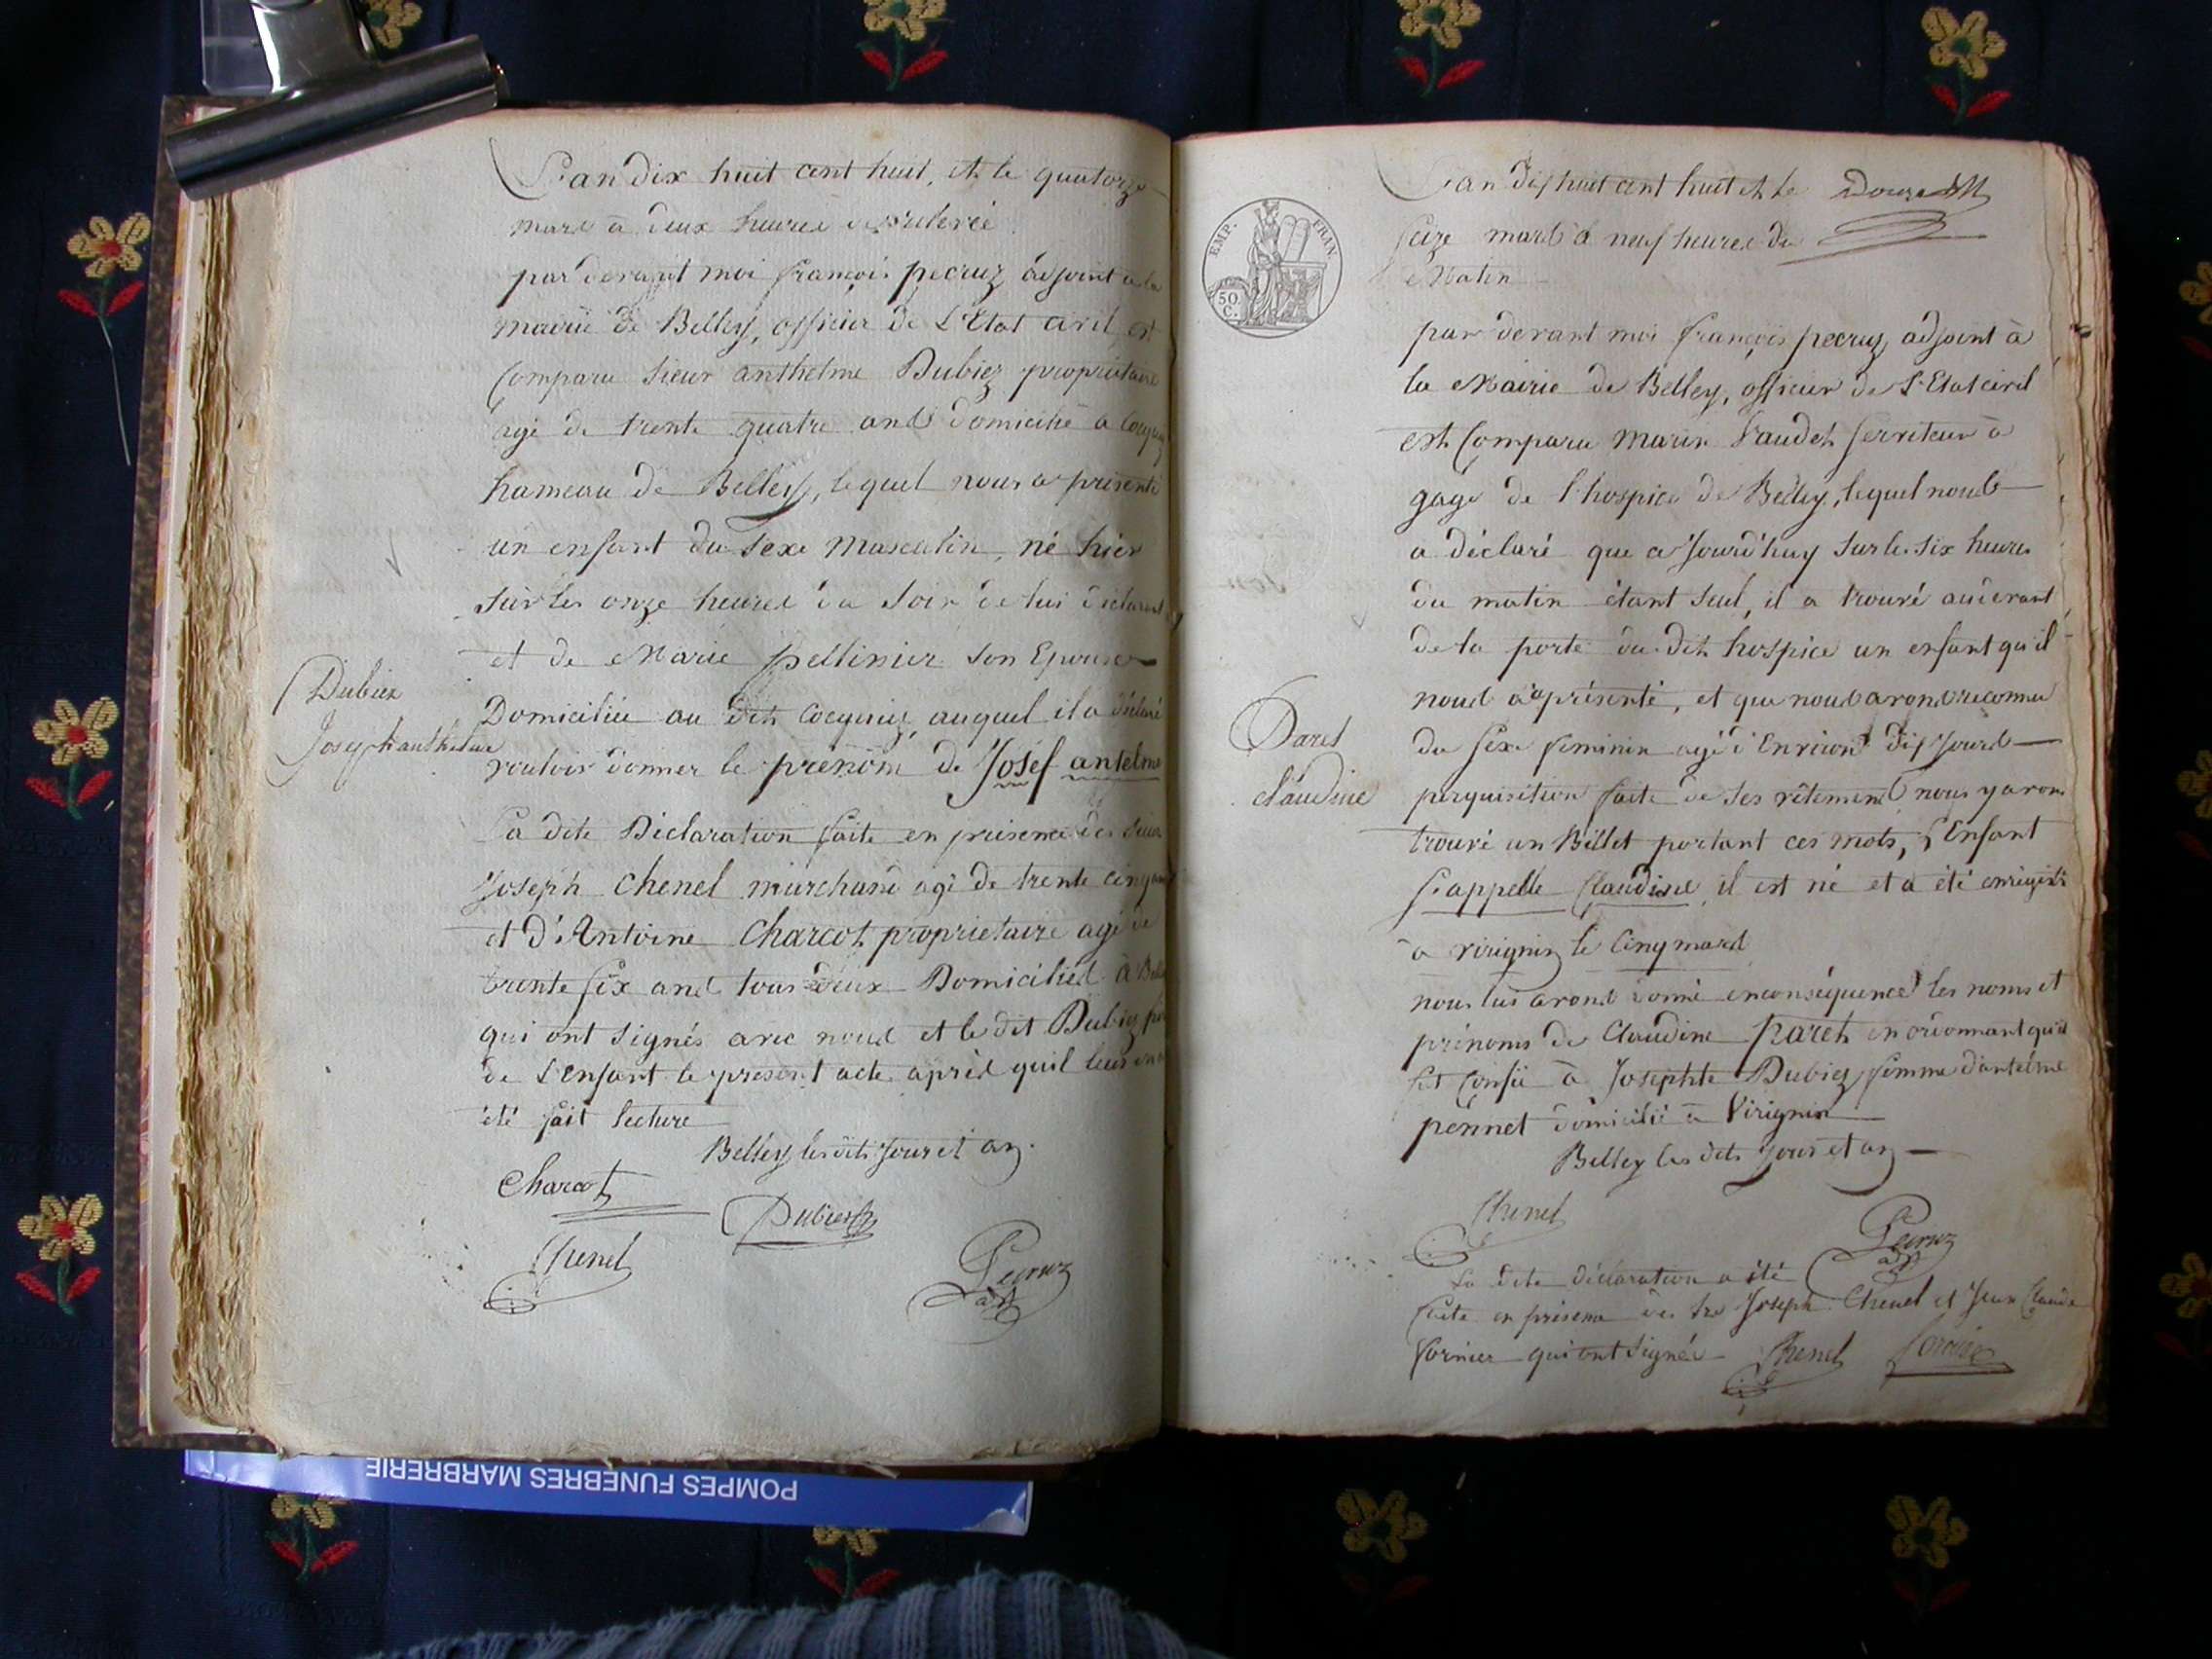 L'an dix huit cent huit, et le quatorze
mars à deux heures de relevée
par devant moi françois pecruz adjoint à la
mairie de Belley, officier de L'Etat civil est
Comparu sieur anthelme Dubiez propriétaire
agé de trente quatre ans domicilié à
hameau de Belley, lequel nous a présenté
un enfant du sexe Masculin, né hier
sur les onze heures du soir de lui déclarant
et de Marie pellinier son Epouse
Domiciliée au dit auquel il a déclaré
vouloir donner le prénom de Joséf antelme
La dite Déclaration faite en présence des sieurs
Joseph Chenel marchand agé de trente cinq ans
et d'Antoine Charcot proprietaire agé de
trente six ans tous deux Domiciliés à
qui ont signés avec nous et le dit Dubiez
de L'enfant le présent acte après quil leur en a
été fait lecture
Belley les dits jour et an.
Charcot
Dubiez
Chenel
Pecruz
adt
Dubiez
Joseph anthelme
EMP. FRAN
50 C.
L'an dix huit cent huit et le
seize mars à neuf heures du
Matin
par devant moi françois pecruz adjoint à
la Mairie de Belley, officier de L'Etat civil
est Comparu Marin Vaudet serviteur à
gage de l'hospice de Belley, lequel nous
a déclaré que a Jourd'huy sur les six heures
du matin étant seul, il a trouvé au devant
de la porte du dit hospice un enfant qu'il
nous a présenté, et que nous avons reconnu
du sexe féminin agé d'Environ dix Jours
perquisition faite de ses vêtements nous y avons
trouvé un Billet portant ces mots, L'Enfant
s'appelle Claudine, il est né et a été enrégistré
à virignin le Cinq mars
nous lui avons donné enconséquence les noms et
prénoms de Claudine Paret en ordonnant qu'il
fut Confié à Josephte Dubiez femme d'antelme
pennet domicilié à Virignin
Belley les dits jour et an
Chenel
Pecruz
adt
La dite déclaration a été
faite en présence des srs Joseph Chenel et Jean Claude
fornier qui ont signés Chenel
Paret
claudine
POMPES FUNEBRES MARBRERIE